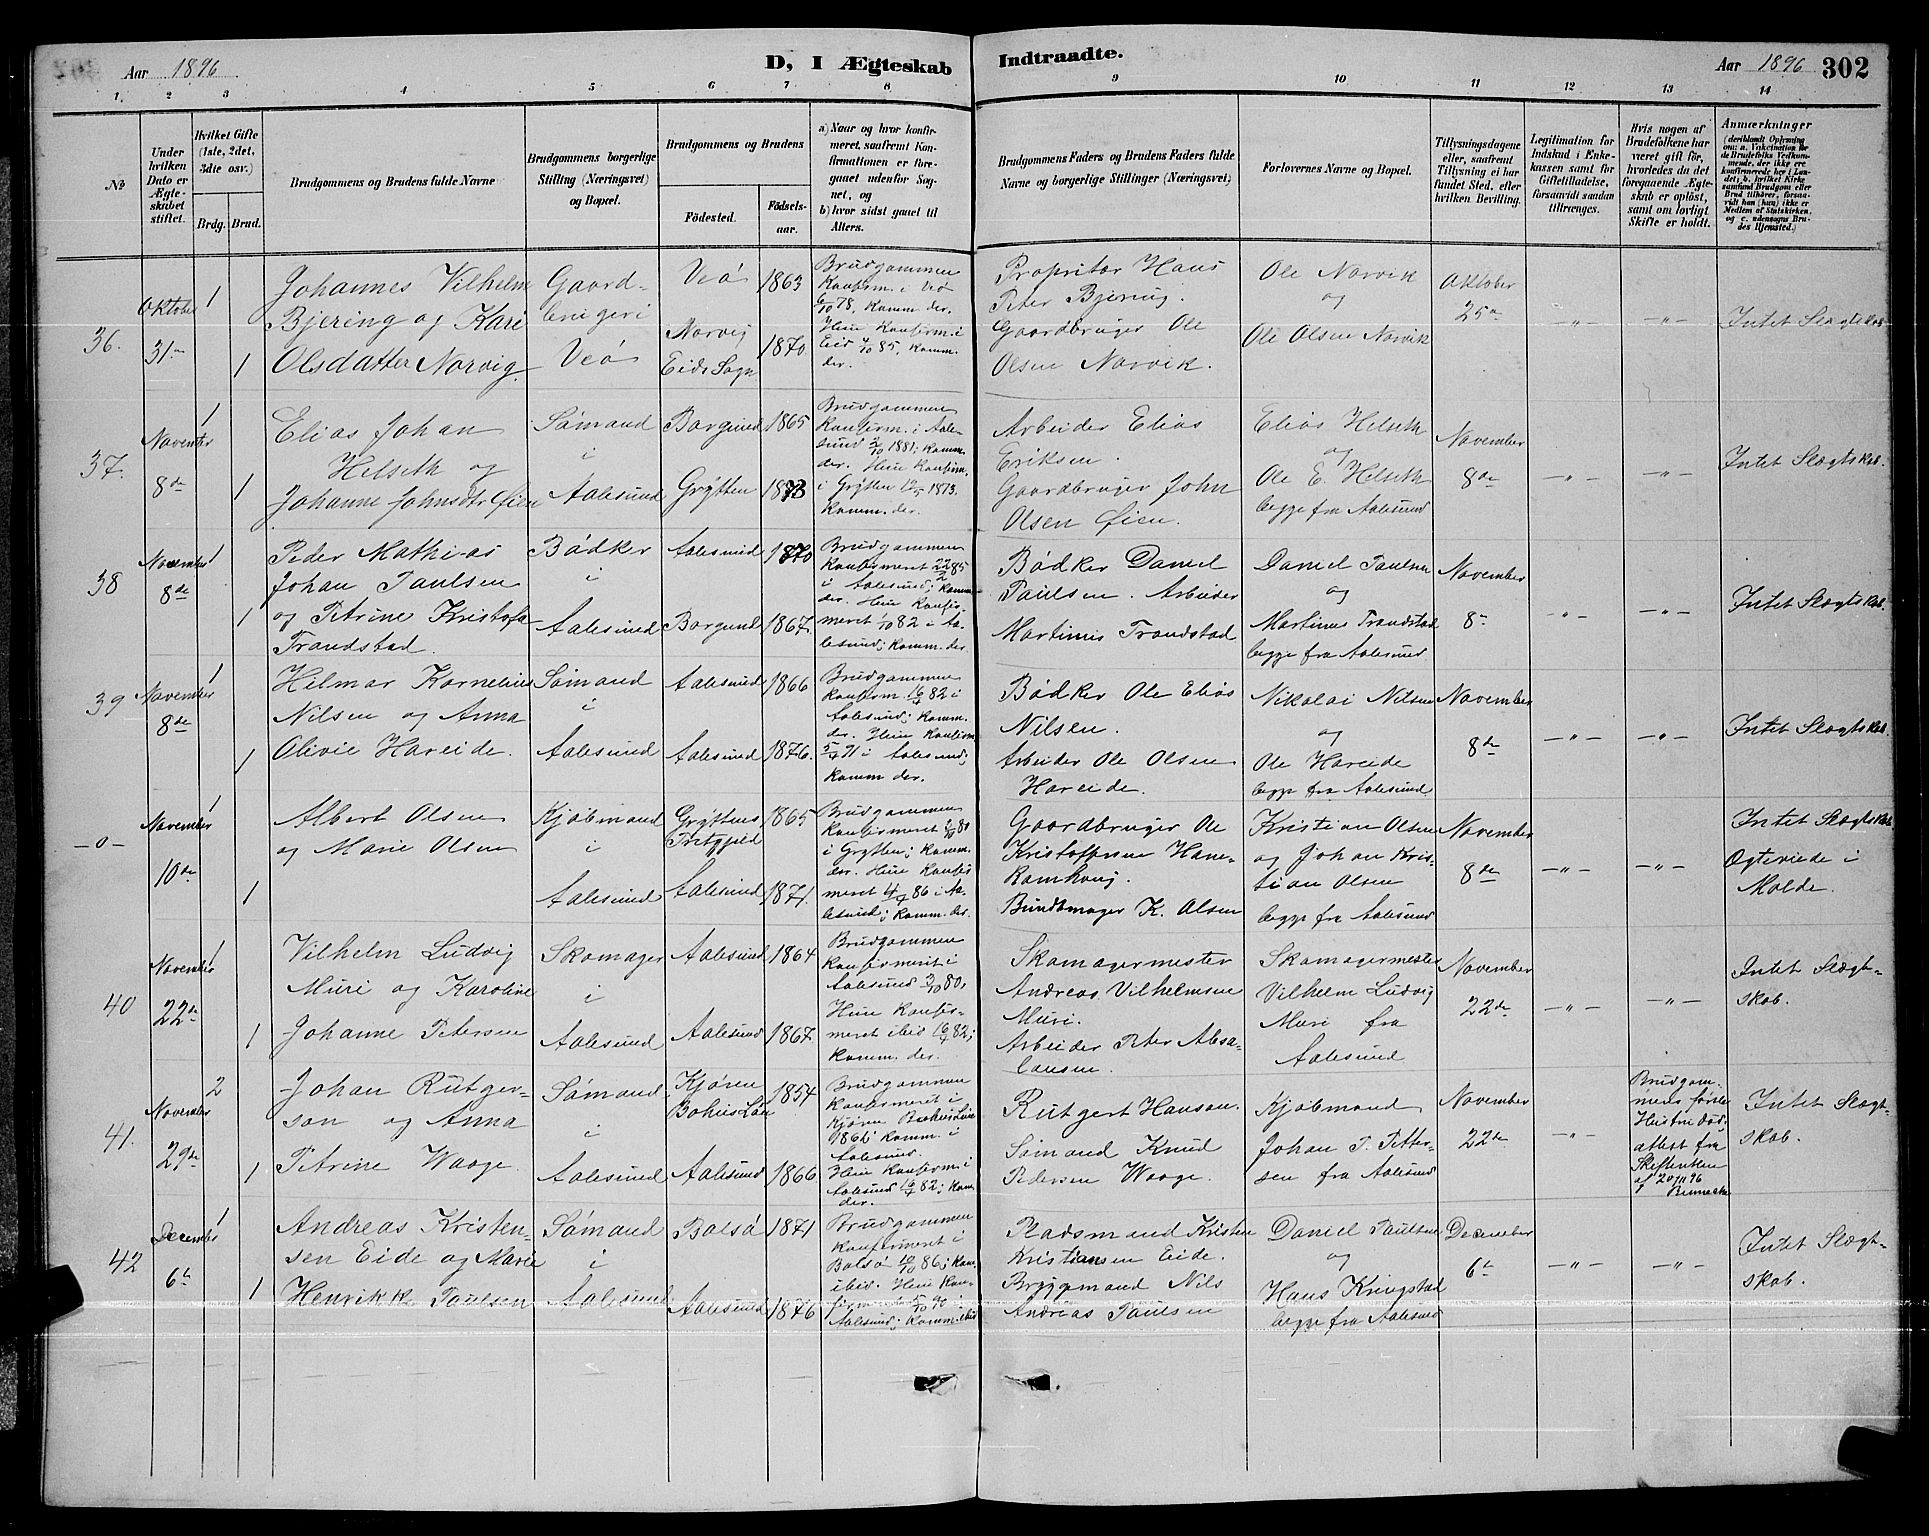 Aar 1896.
D, I Ægteskab
Indtraadte.
Aar 1896
302
1. 2 3 4 5 6 7 8
9 10 11 12 13 14
No
Under hvilken Dato er Ægteskabet stiftet.
Hvilket Gifte (1ste, 2det, 3die osv.)
Brdg. Brud.
Brudgommens og Brudens fulde Navne
Brudgommens borgerlige Stilling (Næringsvei) og Bopæl.
Brudgommens og Brudens
Fødested.
Fødselsaar.
a) Naar og hvor konfirmeret, saafremt Konfirmationen er foregaaet udenfor Sognet, og
b) hvor sidst gaaet til Alters.
Brudgommens Faders og Brudens Faders fulde Navne og borgerlige Stillinger (Næringsvei)
Forlovernes Navne og Bopæl.
Tillysningsdagene eller, saafremt Tillysning ei har fundet Sted, efter hvilken Bevilling.
Legitimation for Indskud i Enkekassen samt for Giftetilladelse, forsaavidt saadan tiltrænges.
Hvis nogen af Brudefolkene har været gift før, hvorledes da det foregaaende Ægteskab er opløst, samt om lovligt Skifte er holdt.
Anmærkninger
36.
Oktober
31te
1
1
Johannes Vilhelm
Bjering og Kari
Olsdatter Norvig.
Gaard-
bruger i
Veø
Veø
Norvig
Eids Sogn
1863
1870
Brudgommen
Konfirm. i Veø
6/10 78, Komm. der.
Konfirm. i
Eid 4/10 85, Komm.
der.
Propritær Hans
Peter Bjering.
Gaardbruger Ole
Olsen Norvik.
Ole Norvik
og
Ole Olsen Norvik
Oktober
25de
-"-
-"-
Intet Slægtskab
37.
November
8de
1
1
Elias Johan
Helseth og
Johanne Johnsdtr Øien
Sømand
i
Aalesund
Borgund
Grytten
1865
1873
Brudgommen
Konfirm. i Aale-
sund 2/10 1881; Komm.
der.
i Grytten 12/5 1873.
Komm. der.
Arbeider Elias
Eriksen.
Gaardbruger John
Olsen Øien.
Elias Helseth
og
Ole E. Helseth
begge fra Aalesund
November
8de
-"-
-"-
Intet Slægtskab.
38
November
8de
1
1
Peder Mathias
Johan Paulsen
og Petrine Kristofa
Trandstad.
Bødker
i
Aalesund
Aalesund
Borgund
1870
1867.
Brudgommen
Konfirmeret
i Aalesund; Komm.
der.
meret 1/10 82 i Aa-
lesund; Komm. der.
Bødker Daniel
Paulsen. Arbeider
Martinus Trandstad
Daniel Paulsen
og
Martinus Trandstad
begge fra Aalesund
November
8de
-"-
-"-
Intet Slægtskab.
39
November
8de
1
1
Hilmar Kornelius
Nilsen og Anna
Olivie Hareide.
Sømand
i
Aalesund
Aalesund
Aalesund
1866
1876.
Brudgommen
Konfirm. 16/4 82 i
Aalesund; Komm.
der.
5/4 91 i Aalesund;
Komm der.
Bødker Ole Elias
Nilsen.
Arbeider Ole Olsen
Hareide.
Nikolai Nilsen
og
Ole Hareide
begge fra Aalesund
November
8de
-"-
-"-
Intet Slægtskab.
-0-
November
10de
1
1
Albert Olsen
og Marie Olsen
Kjøbmand
i
Aalesund
Gryttens
Aalesund
1865
1871.
Brudgommen
Konfirmeret
i Grytten; Komm.
der.
meret 4/4 86 i Aa-
lesund; Komm. der.
Gaardbruger Ole
Kristoffersen Hane-
kamhaug.
Bundtmager K. Olsen
Kristian Olsen
og Johan Kris-
tian Olsen
begge fra Aalesund
November
8de
-"-
-"-
Intet Slægtskab
Ægteviede i
Molde.
40
November
22de
1
1
Vilhelm Ludvig
Muri og Karoline
Johanne Petersen
Skomager
i
Aalesund
Aalesund
Aalesund
1864
1867.
Brudgommen
Konfirmeret i
Aalesund 3/10 80,
meret ibid 16/4 82;
Komm. der.
Skomagermester
Andreas Vilhelmsen
Muri.
Arbeider Peter Absa-
lonsen.
Skomagermester
Vilhelm Ludvig
Muri fra
Aalesund
November
22de
-"-
-"-
Intet Slægt-
skab.
41.
November
29de
2
1
Johan Rutger-
son og Anna
Petrine Waage.
Sømand
i
Aalesund
Kjøren
Bohus Län
Aalesund
1854
1866
Brudgommen
Konfirmeret i
Komm. i
Aalesund.
Konfirm. i
Aalesund 16/4 82; Kom.
der.
Rutgert Hanson.
Sømand Knud
Pedersen Waage.
Kjøbmand
Johan P. Petter-
sen fra Aalesund
November
22de
-"-
Brudgom-
mens første
Hustru død,
attest fra
Skifteretten
af 20/11 96
Intet Slægt-
skab.
42
December
6te
1
1
Andreas Kristen-
sen Eide og Marie
Henrikke Paulsen
Sømand
i
Aalesund
Bolsø
Aalesund
1871
1876
Brudgommen
Konfirmeret i
Bolsø 10/10 86; Kom.
ibid.
Aalesund; Komm. ibid
Pladsmand Kristen
Kristiansen Eide.
Bryggemand Nils
Andreas Paulsen
Daniel Paulsen
og
Hans Kringstad
begge fra Aalesund
December
6te
-"-
-"-
Intet Slægt-
skab.